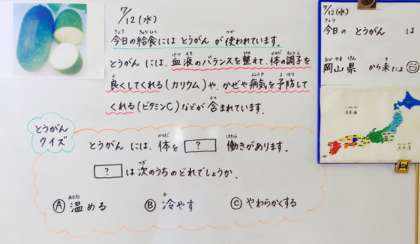 7/12(水)
今日の給食には とうがん が 使われています。
とうがん には、血液のバランスを整えて、体の調子を
良くしてくれる(カリウム)や、かぜや病気を予防して
くれる(ビタミンC)などが 含まれています。
とうがん
クイズ
とうがん には、体を ? 働きがあります。
? は 次のうちの どれでしょうか。
Ⓐ 温める Ⓑ 冷やす Ⓒ やわらかくする
7/12(水)
今日の とうがん は
岡山県 から来たよ